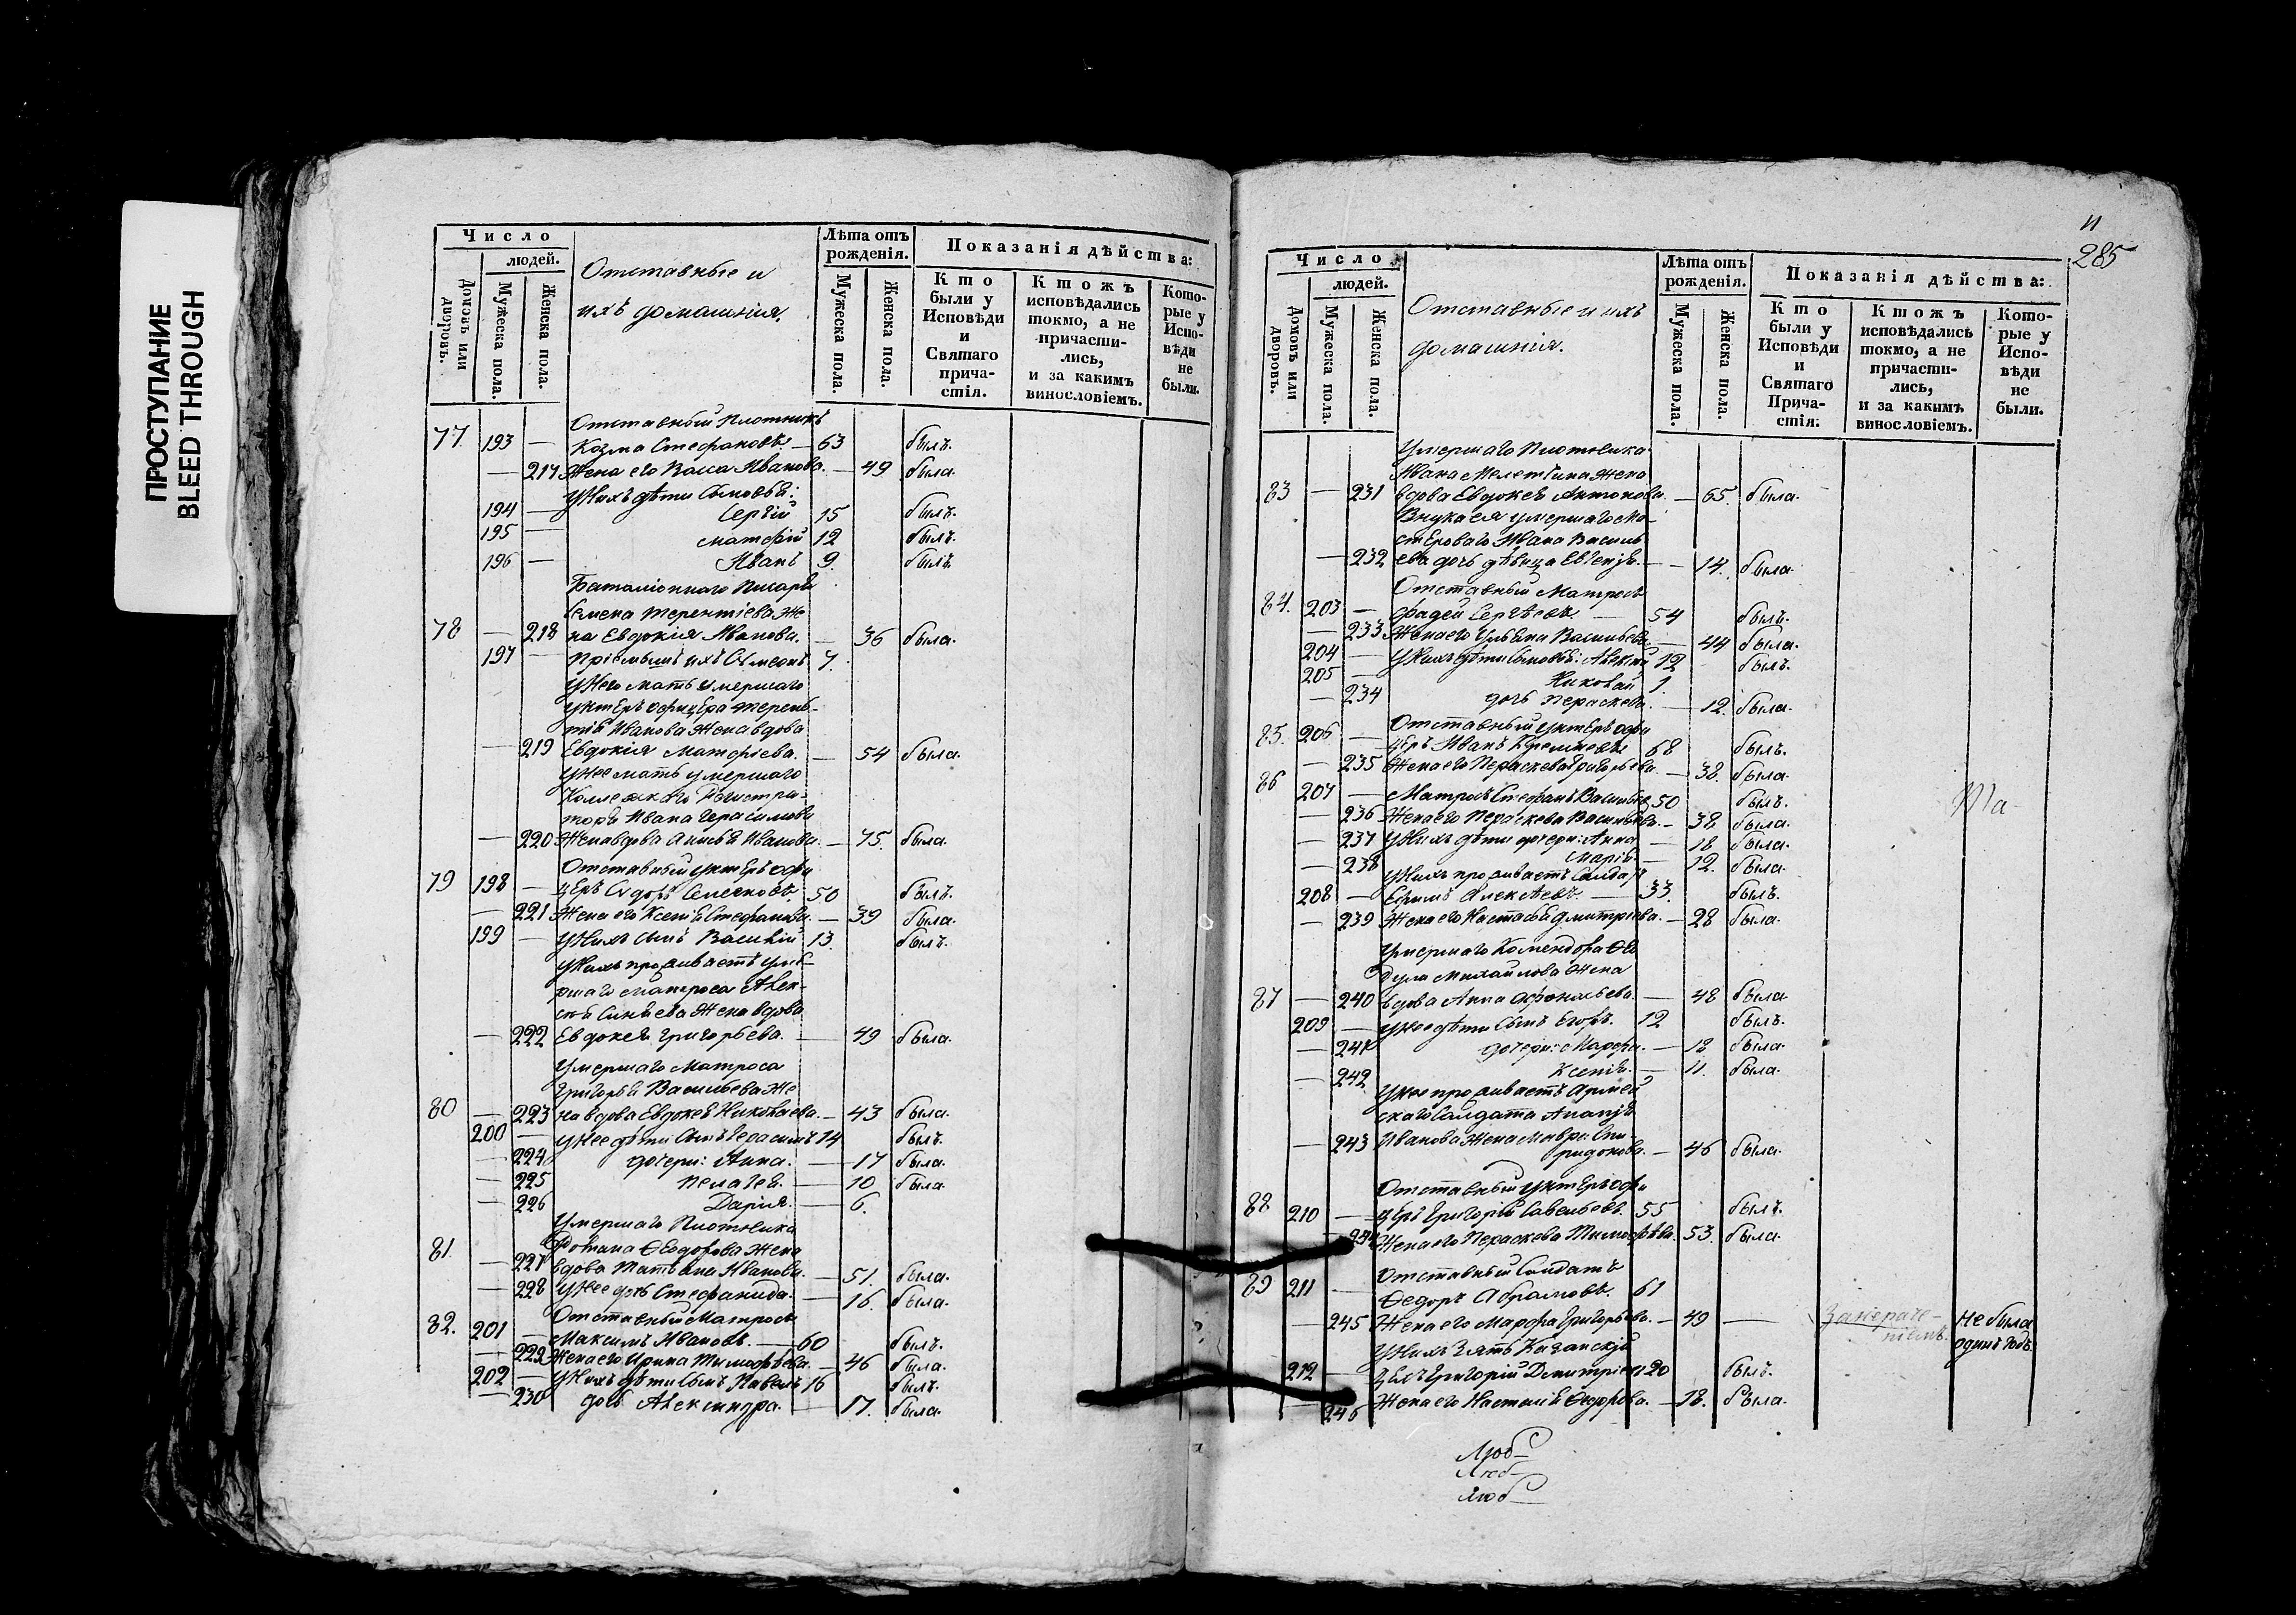 ПРОСТУПАНИЕ
BLEED THROUGH
Число
людей.
Домовъ или дворовъ.
Мужеска пола.
Женска пола.
Отставные и
ихъ домашнія.
Лѣта отъ рожденія.
Мужеска пола.
Женска пола.
Показанія дѣйства:
Кто были у Исповѣди и Святаго прича-стія.
Ктожъ исповѣдались токмо, а не причасти-лись, и за какимъ винословіемъ.
Кото-рые у Испо-вѣди не были.
Отставный Плотникъ
77 193 — Козма Стефановъ — 63 былъ.
— 217 Жена его Васса Иванова. — 49 была.
У нихъ дѣти Сыновья:
194 — Сергій 15 былъ.
195 — Матфій 12 былъ.
196 — Иванъ 9. былъ
Баталіоннаго Писаря
Семена Терентіева Же
78 — 218 на Евдокія Иванова. — 36 была.
197 — Пріемышъ ихъ Симеонъ 7.
У него мать умершаго
унтеръ офицера Терень-
тія Иванова Жена вдова
— 219 Евдокія Матфѣева. — 54 была.
У нее мать умершаго
Коллежскаго Регистра-
тора Ивана Герасимова
— 220 Жена вдова Анисья Иванова. — 75. была.
Отставный унтеръ офи
79 198 — церъ Сидоръ Селезновъ. 50 былъ.
— 221 Жена его Ксенія Стефанова. — 39 была.
199 — У нихъ сынъ Василій 13. былъ.
У нихъ проживаетъ уме
ршаго Матроса Алек-
сѣя Синяева Жена вдова
— 222 Евдокея Григорьева. — 49 была.
Умершаго Матроса
Григорья Васильева Же
80 — 223 на вдова Евдокея Николаева. — 43 была.
200 — У нее дѣти Сынъ Герасимъ 14 былъ.
— 224 дочери: Анна. — 17 была.
— 225 Пелагея. — 10 была.
— 226 Дарія. — 6.
Умершаго Плотника
81. Романа Ѳеодорова Жена
— 227 вдова Татьяна Иванова. — 51. была.
— 228 У нее дочь Стефанида. — 16. была.
Отставный Матросъ
82. 201 — Максимъ Ивановъ. — 60 былъ.
— 229 Жена его Ирина Тимофѣева. — 46 была.
202 — У нихъ дѣти Сынъ Павелъ 16 былъ.
— 230 дочь Александра. — 17. была.
11
285
Число
людей.
Домовъ или дворовъ.
Мужеска пола.
Женска пола.
Отставные и ихъ
домашнія.
Лѣта отъ рожденія.
Мужеска пола.
Женска пола.
Показанія дѣйства:
Кто были у Исповѣди и Святаго Прича-стія:
Ктожъ исповѣдались токмо, а не причасти-лись, и за какимъ винословіемъ.
Кото-рые у Испо-вѣди не были.
Умершаго Плотника
Ивана Мелетіина Жена
83 — 231 вдова Евдокея Антонова. — 65. была.
Внука ея умершаго Ма-
стероваго Ивана Василь
— 232 ева дочь дѣвица Евгенія. — 14. была.
Отставный Матросъ
84. 203 — Фадей Сергѣевъ. — 54 былъ.
— 233 Жена его Ульяна Васильева — 44 была.
204 — У нихъ дѣти Сыновья: Алексѣй 12 былъ.
205 — Николай 1.
— 234 дочь Пераскева. — 12. была.
85. 206 — Отставный унтеръ офи
церъ Иванъ Кремневъ 68 былъ.
— 235 Жена его Пераскева Григорьева. — 38. была.
86 207 — Матросъ Стефанъ Васильев 50 былъ.
— 236 Жена его Пераскева Васильева. — 38. была.
— 237 У нихъ дѣти дочери: Анна — 18 была.
— 238 Марія — 12. была.
У нихъ проживаетъ Солдатъ
208 — Ефимъ Алексѣевъ. — 33. былъ.
— 239 Жена его Настасья Дмитріева. — 28 была.
Умершаго Комендора Ѳе
дула Михайлова Жена
87 — 240 вдова Анна Афонасьева. — 48 была
209 — У нее дѣти Сынъ Егоръ. 12 былъ.
— 241 дочери: Марфа. — 18 была.
— 242 Ксенія. — 11. была.
У нее проживаетъ Армей
скаго Солдата Ананія
— 243 Иванова Жена Мавра Спи-
ридонова. — 46 была.
Отставный унтеръ офи
88 210 — церъ Григорій Савельевъ. 55 былъ.
— 244 Жена его Пераскева Тимофѣева. 53. была.
Отставный Солдатъ
89 211 — Ѳедоръ Абрамовъ. 61
— 245 Жена его Марфа Григорьева. — 49 — Не была
одинъ годъ.
У нихъ Зять
212 — Григорій Дмитріев 20 былъ.
— 246 Жена его Настасія Ѳедорова. — 18. была.
Люб
Люб
Люб